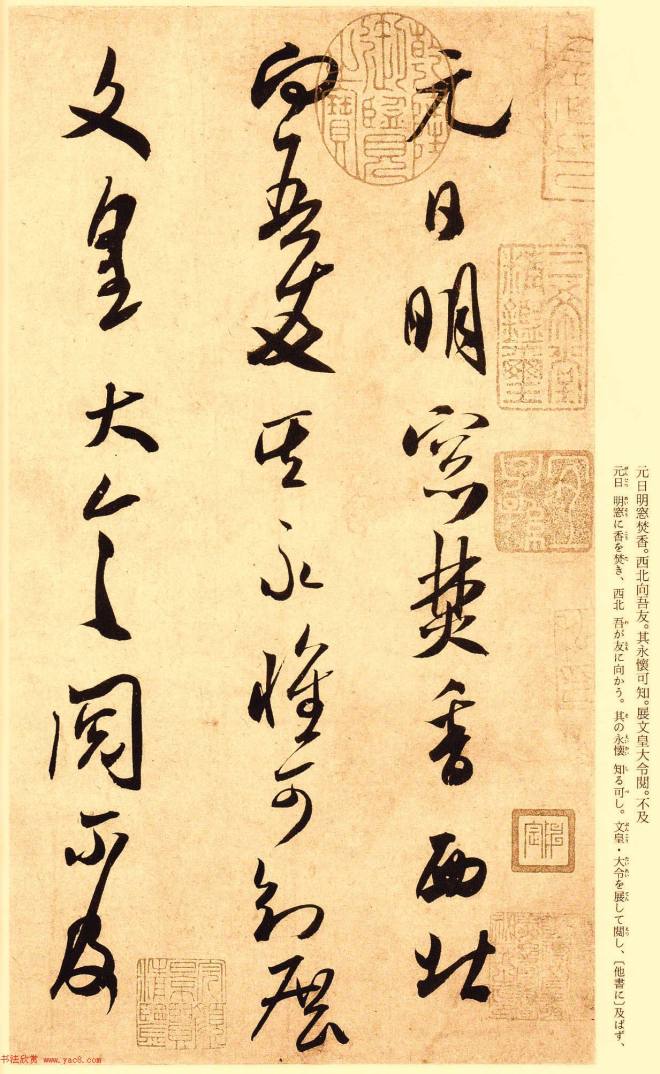 元日明窓焚香西北
向吾友其永懷可知展
文皇大令閲不及
乾隆御覽之寶
三希堂精鑑璽
宜子孫
元日明窓焚香。西北向吾友。其永懷可知。展文皇大令閲。不及
元日 明窓に香を焚き、西北 吾が友に向かう。其の永懷 知る可し。文皇・大令を展して閲し、〔他書に〕及ばず、
书法欣赏 www.yac8.com